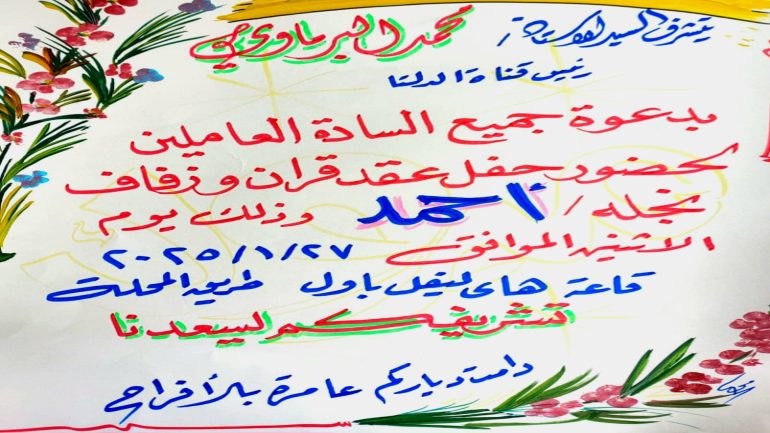 يتشرف السيد الأستاذ/ محمد البرماوي
رئيس قناة الدلتا
بدعوة جميع السادة العاملين
لحضور حفل عقد قران وزفاف
نجله/ أحمد وذلك يوم
الاثنين الموافق ٢٠٢٥/١/٢٧
قاعة هاى ليفل باول طريق المحلة
تشريفكم يسعدنا
دامت دياركم عامرة بالأفراح